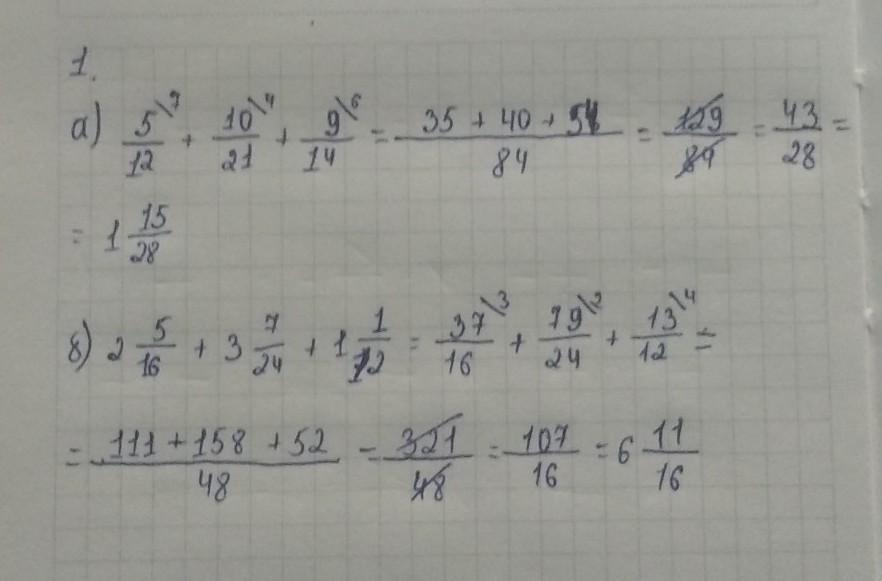 1.
а) 5/12 \7 + 10/21 \4 + 9/14 \6 = (35 + 40 + 54)/84 = 129/84 = 43/28 =
= 1 15/28
б) 2 5/16 + 3 7/24 + 1 1/12 = 37/16 \3 + 79/24 \2 + 13/12 \4 =
= (111 + 158 + 52)/48 = 321/48 = 107/16 = 6 11/16